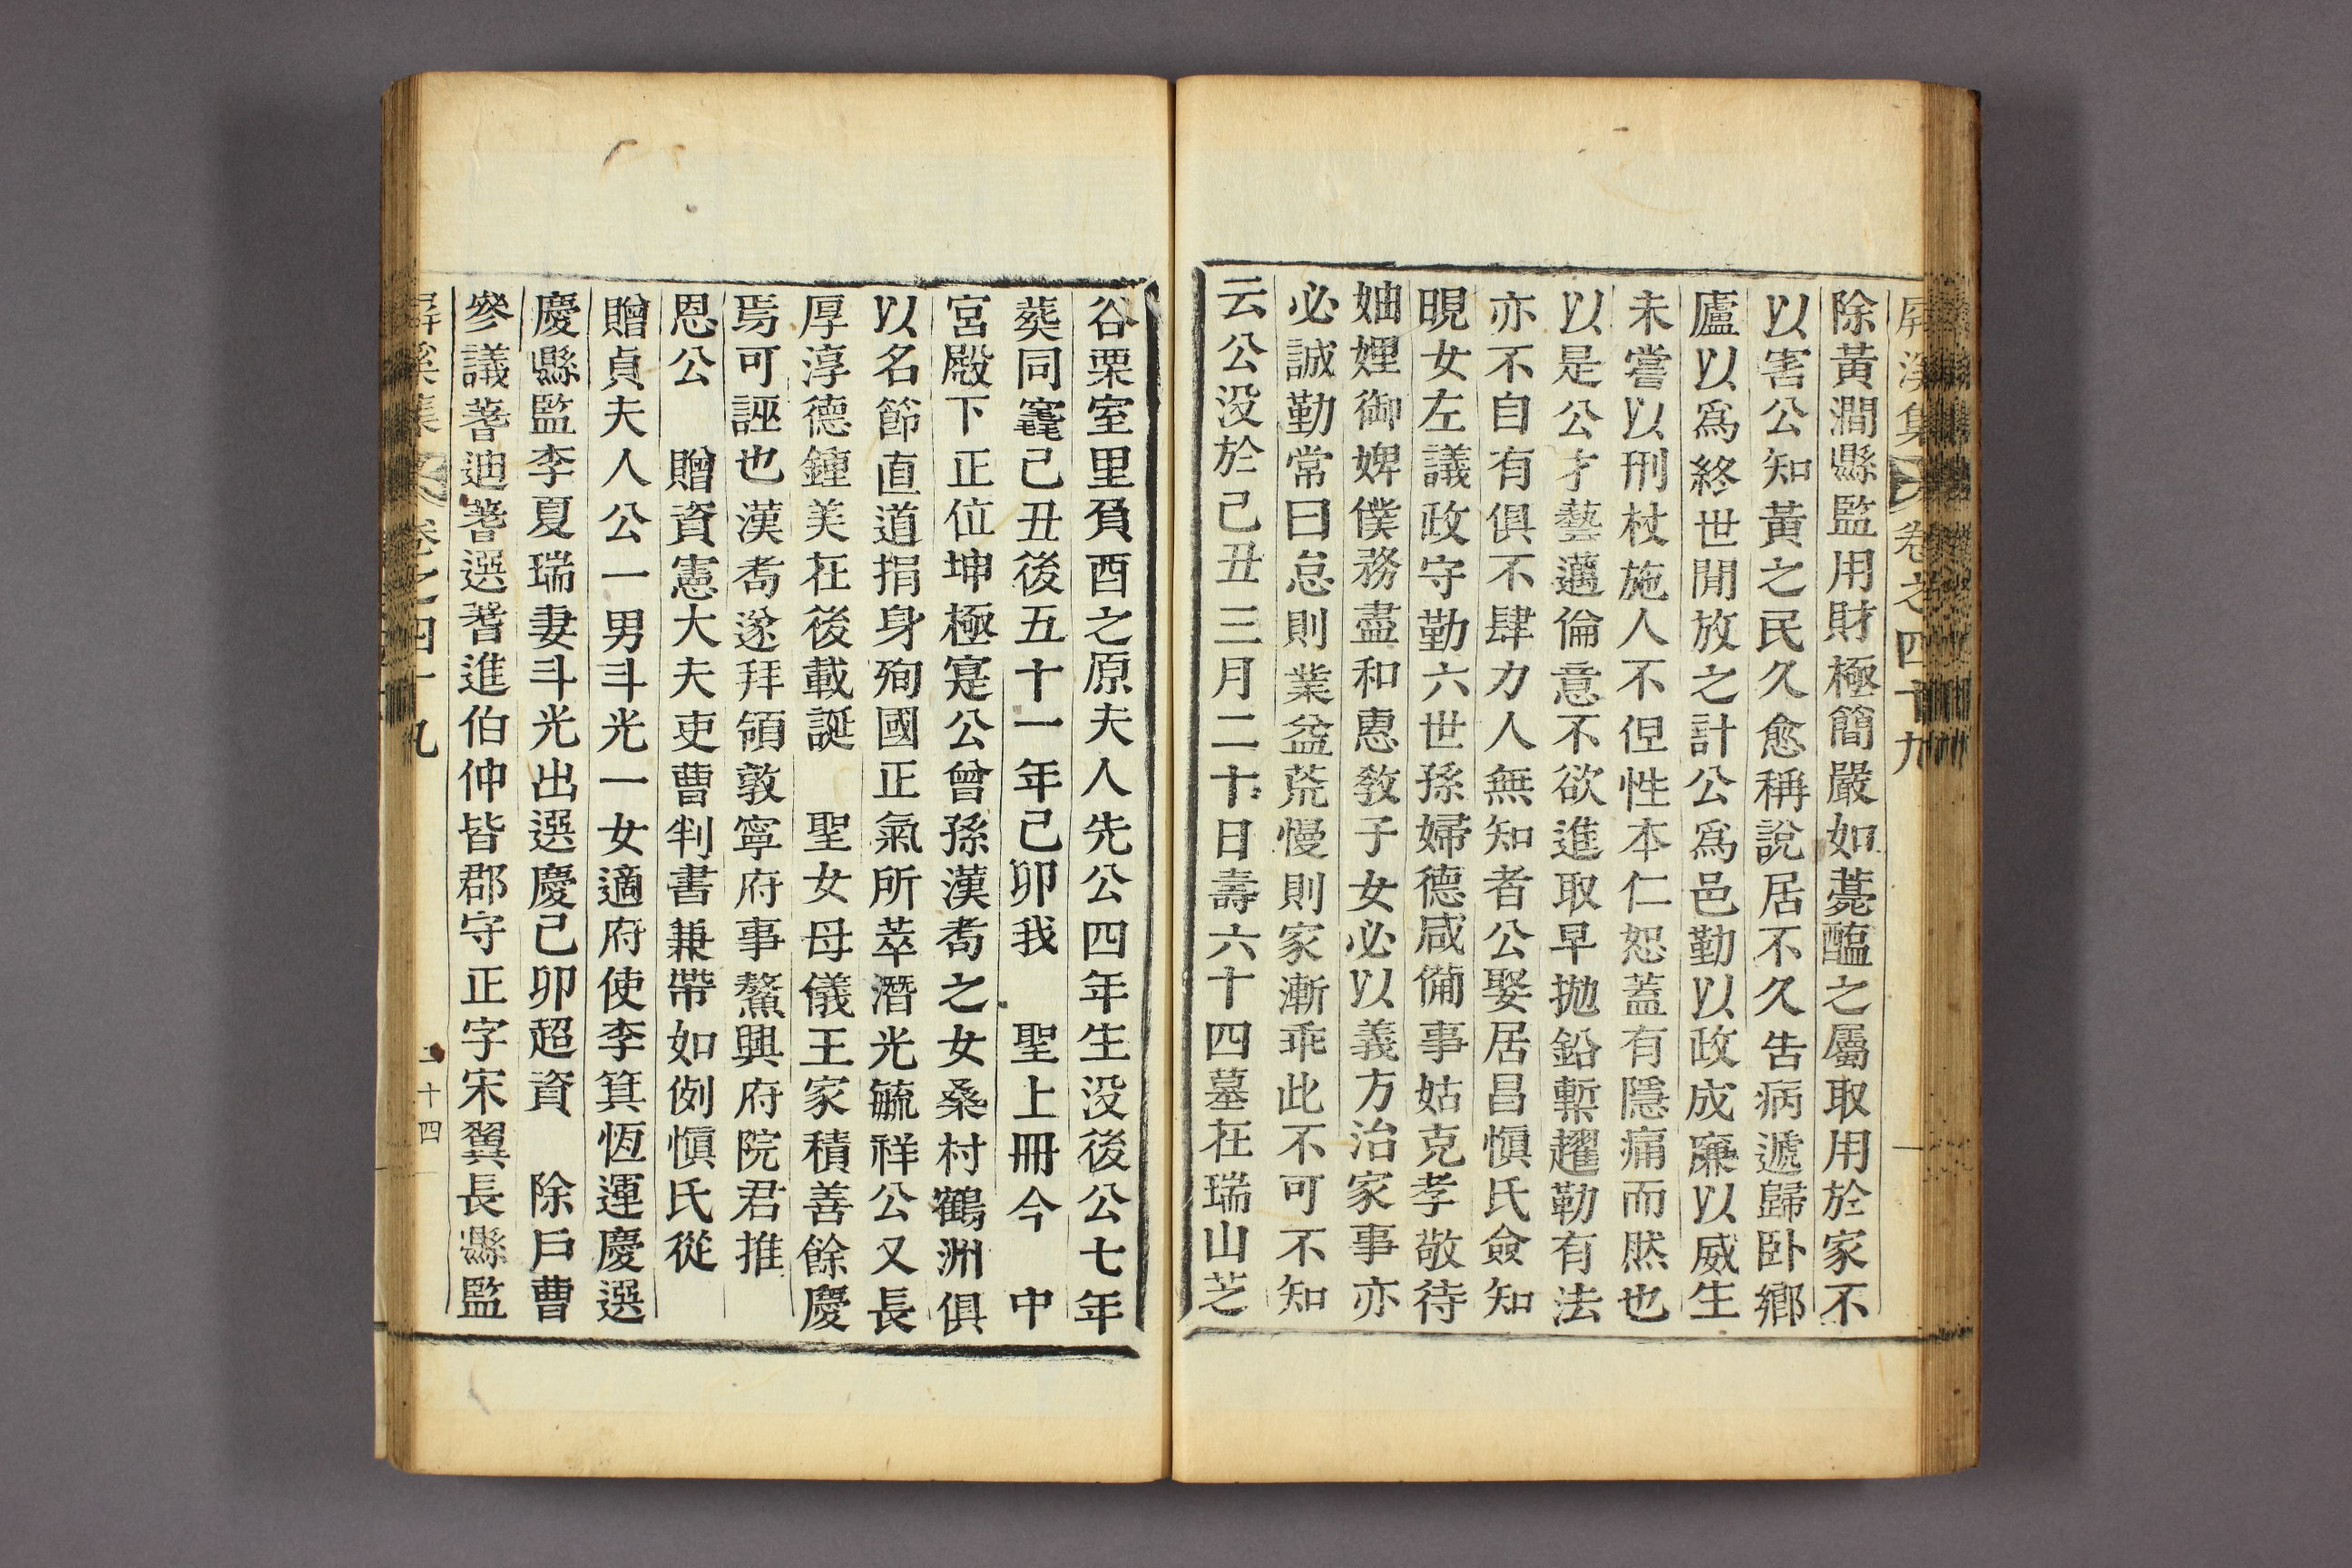 屛溪集 卷之四十九
除黃澗縣監用財極簡嚴如薧醢之屬取用於家不
以害公知黃之民久愈稱說居不久告病遞歸卧鄕
廬以爲終世閒放之計公爲邑勤以政成廉以威生
未嘗以刑杖施人不但性本仁恕蓋有隱痛而然也
以是公才藝邁倫意不欲進取早抛鉛槧趯勒有法
亦不自有俱不肆力人無知者公娶居昌愼氏僉知
晛女左議政守勤六世孫婦德咸備事姑克孝敬待
妯娌御婢僕務盡和惠敎子女必以義方治家事亦
必誠勤常曰怠則業益荒慢則家漸乖此不可不知
云公没於己丑三月二十日壽六十四墓在瑞山芝
谷栗室里負酉之原夫人先公四年生没後公七年
葬同窆己丑後五十一年己卯我 聖上冊今 中
宮殿下正位坤極寔公曾孫漢耉之女桑村鶴洲俱
以名節直道捐身殉國正氣所萃潛光毓祥公又長
厚淳德鐘美在後載誕 聖女母儀王家積善餘慶
焉可誣也漢耉遂拜領敦寧府事鰲興府院君推
恩公 贈資憲大夫吏曹判書兼帶如例愼氏從
贈貞夫人公一男斗光一女適府使李箕恆運慶選
慶縣監李夏瑞妻斗光出選慶己卯超資 除戶曹
參議蓍迪蓍選蓍進伯仲皆郡守正字宋翼長縣監
屛溪集 卷之四十九 二十四